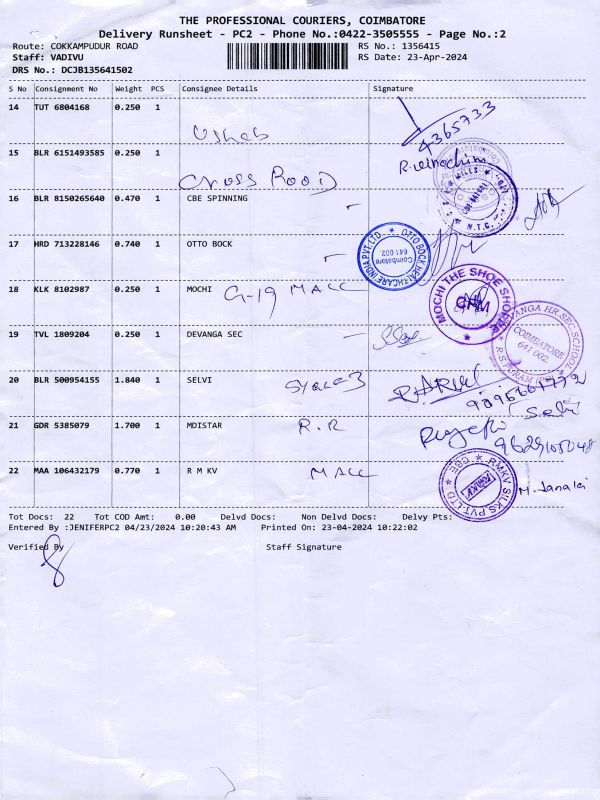 THE PROFESSIONAL COURIERS, COIMBATORE
Delivery Runsheet - PC2 - Phone No.:0422-3505555 - Page No.:2
Route: COKKAMPUDUR ROAD RS No.: 1356415
Staff: VADIVU RS Date: 23-Apr-2024
DRS No.: DCJB135641502
S No Consignment No Weight PCS Consignee Details Signature
14 TUT 6804168 0.250 1
4365733
15 BLR 6151493585 0.250 1
Cross Road
16 BLR 8150265640 0.470 1 CBE SPINNING
17 HRD 713228146 0.740 1 OTTO BOCK
OTTO BOCK HEALTHCARE INDIA PVT. LTD. Coimbatore 641 002.
18 KLK 8102987 0.250 1 MOCHI G-19 MACC
MOCHI THE SHOE SHOPPE
19 TVL 1809204 0.250 1 DEVANGA SEC
DEVANGA HR.SEC.SCHOOL COIMBATORE 641 002. R.S.PURAM
20 BLR 500954155 1.840 1 SELVI
Selvi
21 GDR 5385079 1.700 1 MDISTAR R.R
22 MAA 106432179 0.770 1 R M KV MACC
RMKV SILKS PVT. LTD CBE RMKV
M. Janaki
Tot Docs: 22 Tot COD Amt: 0.00 Delvd Docs: Non Delvd Docs: Delvy Pts:
Entered By :JENIFERPC2 04/23/2024 10:20:43 AM Printed On: 23-04-2024 10:22:02
Verified By Staff Signature